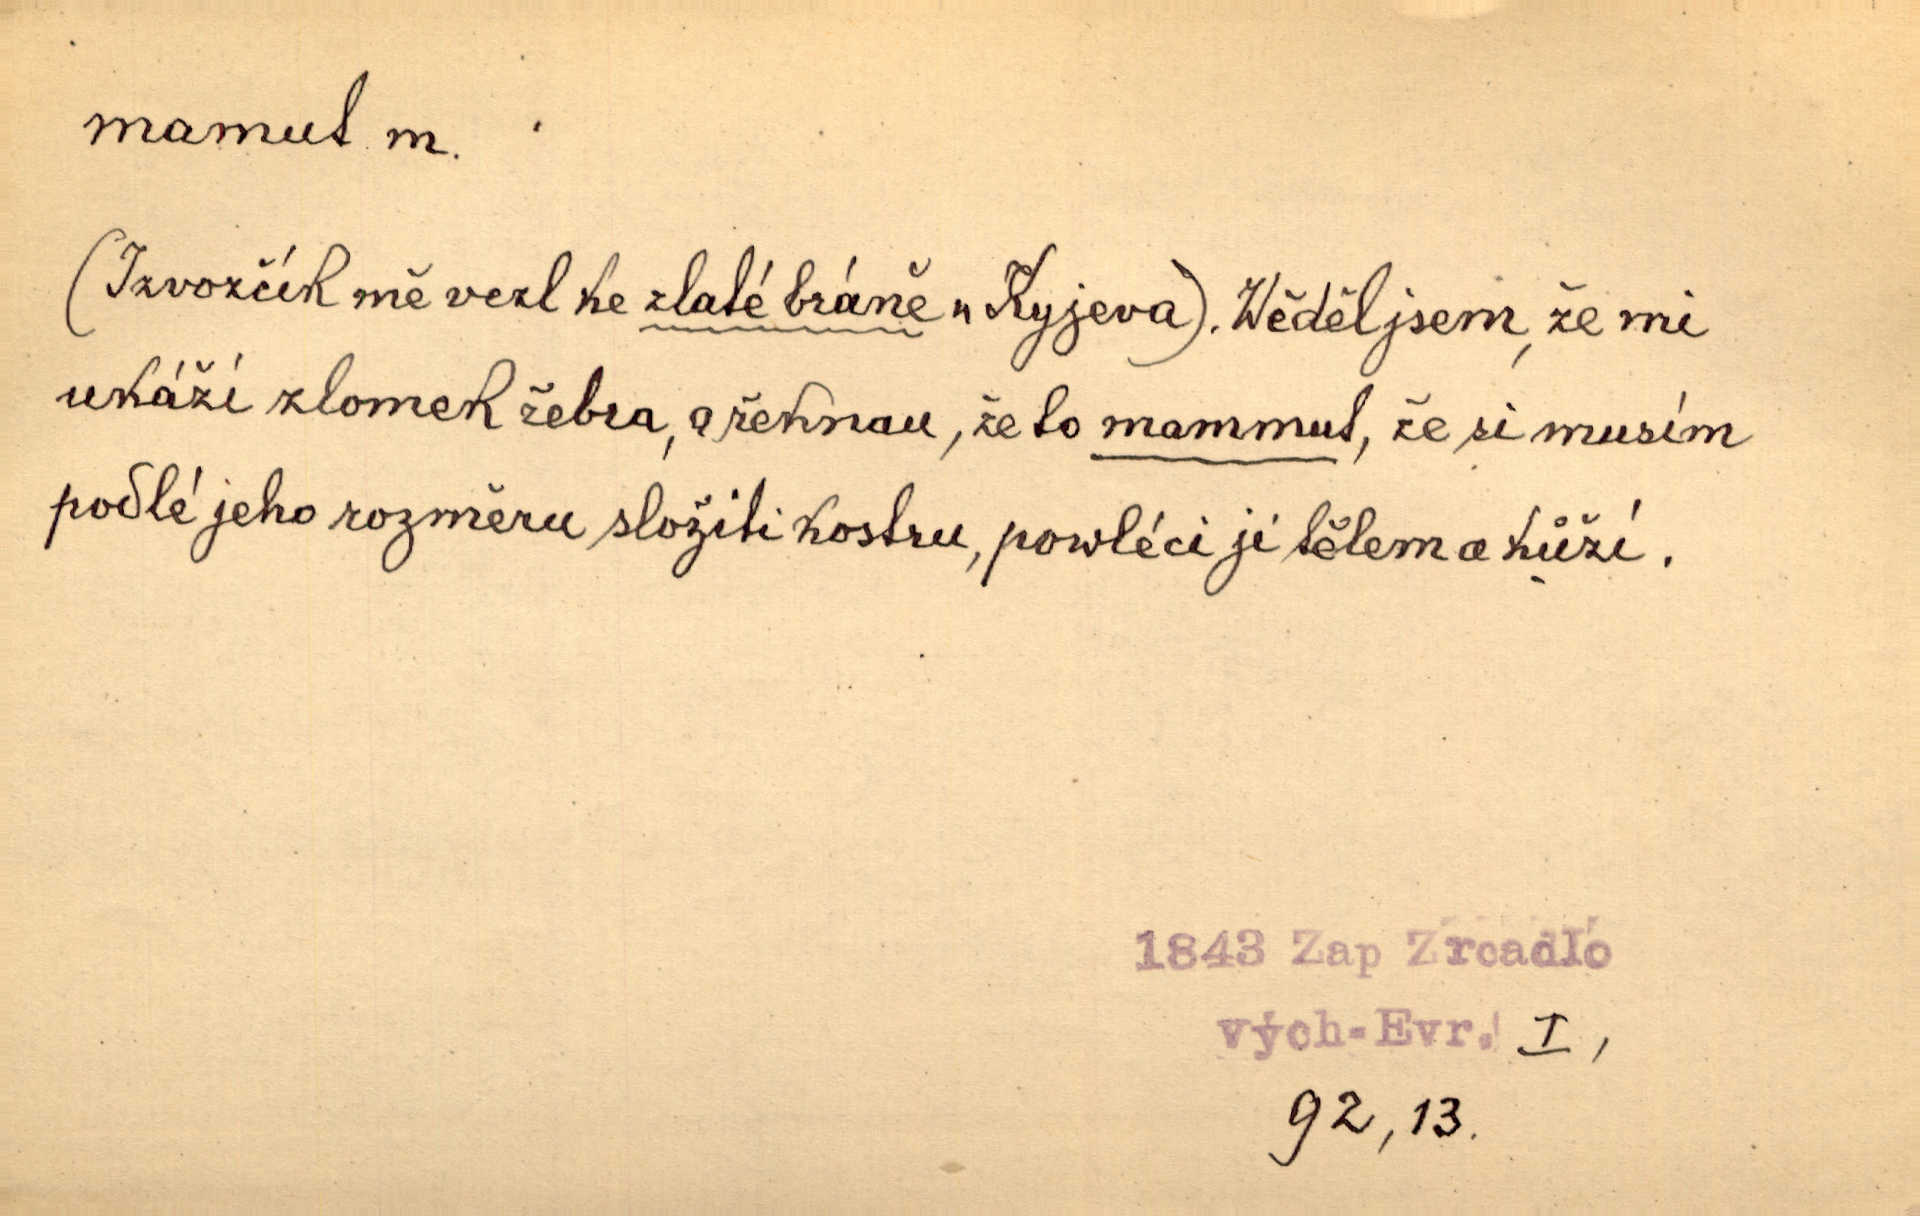 mamut m.
(Izvozčík mě vezl ke zlaté bráně u Kyjeva). Wěděl jsem, že mi
ukáží zlomek žebra, a řeknau, že to mammut, že si musím
podlé jeho rozměru složiti kostru, powléci ji tělem a kůží.
1843 Zap Zrcadlo
vých-Evr. I,
92, 13.